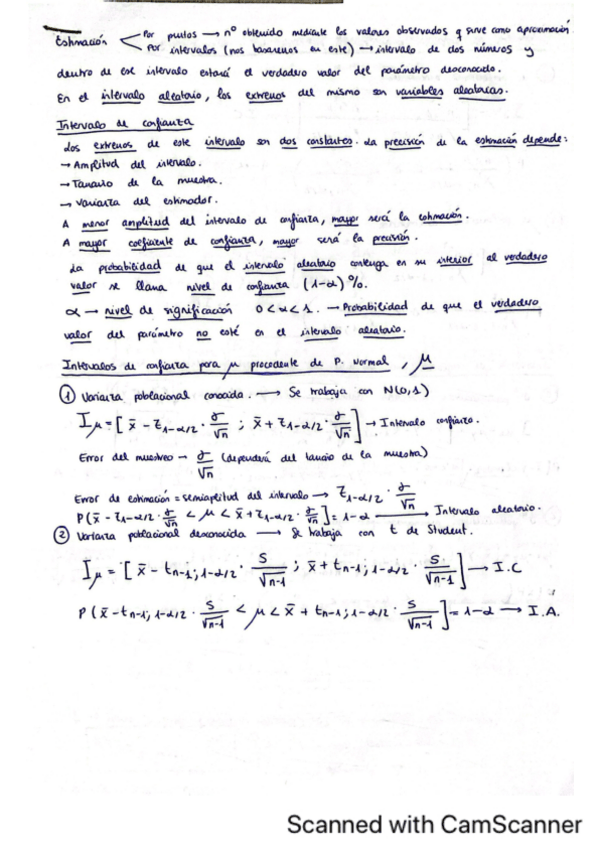 Estimación
Por puntos → nº obtenido mediante los valores observados q sirve como aproximación
Por intervalos (nos basaremos en este) → intervalo de dos números y
dentro de ese intervalo estará el verdadero valor del parámetro desconocido.
En el intervalo aleatorio, los extremos del mismo son variables aleatorias.
Intervalo de confianza
Los extremos de este intervalo son dos constantes. La precisión de la estimación depende:
→ Amplitud del intervalo.
→ Tamaño de la muestra.
→ Varianza del estimador.
A menor amplitud del intervalo de confianza, mayor será la estimación.
A mayor coeficiente de confianza, mayor será la precisión.
La probabilidad de que el intervalo aleatorio contenga en su interior al verdadero
valor se llama nivel de confianza (1-α)%.
α → nivel de significación 0<α<1. → Probabilidad de que el verdadero
valor del parámetro no esté en el intervalo aleatorio.
Intervalos de confianza para μ procedente de P. normal, μ
① Varianza poblacional conocida. → Se trabaja con N(0,1)
Iμ = [x̄ - z1-α/2 · σ/√n ; x̄ + z1-α/2 · σ/√n] → Intervalo confianza.
Error del muestreo → σ/√n (dependerá del tamaño de la muestra)
Error de estimación = semiamplitud del intervalo → z1-α/2 · σ/√n
P(x̄ - z1-α/2 · σ/√n < μ < x̄ + z1-α/2 · σ/√n] = 1-α → Intervalo aleatorio.
② Varianza poblacional desconocida → Se trabaja con t de Student.
Iμ = [x̄ - tn-1; 1-α/2 · S/√n-1 ; x̄ + tn-1; 1-α/2 · S/√n-1] → I.C
P(x̄ - tn-1; 1-α/2 · S/√n-1 < μ < x̄ + tn-1; 1-α/2 · S/√n-1] = 1-α → I.A.
Scanned with CamScanner